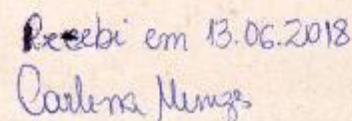 Recebi em 13.06.2018
Carlena Menezes